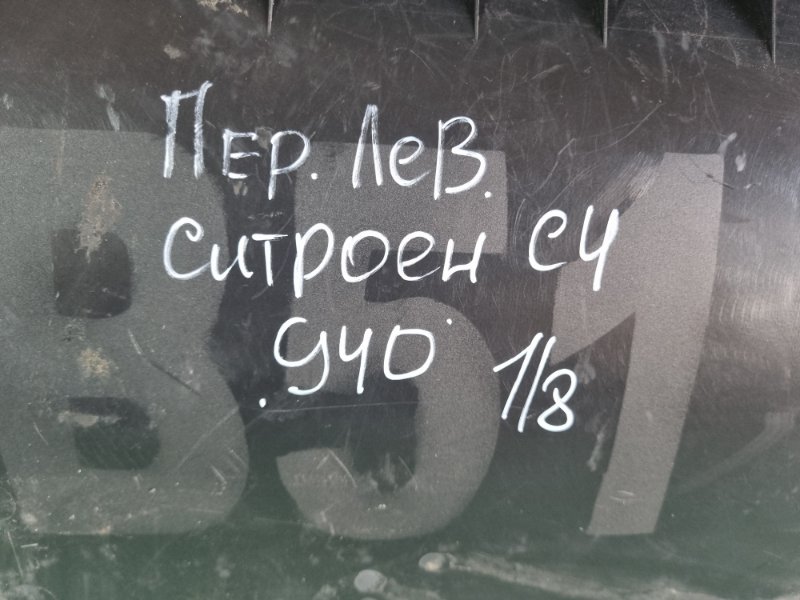 Пер. Лев.
Ситроен С4
940 1/8
B51